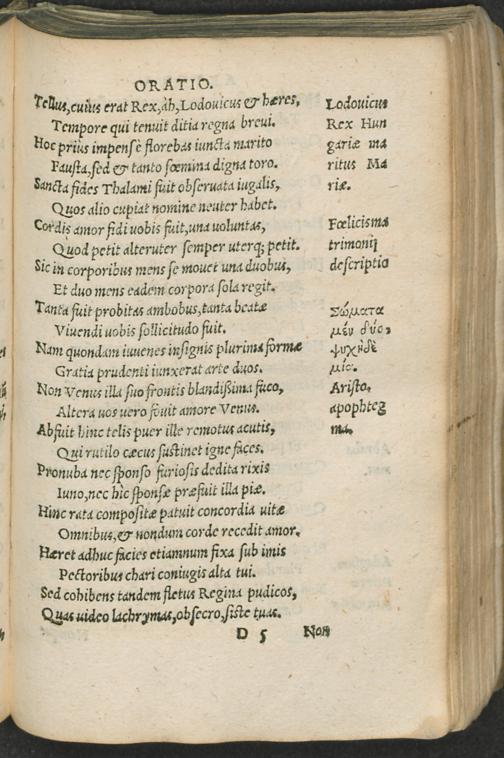 ORATIO.
Tellus, cuius erat Rex, àh, Lodouicus & hæres,
Tempore qui tenuit ditia regna breui.
Hoc prius impensè florebas iuncta marito
Fausta, sed & tanto fœmina digna toro.
Sancta fides Thalami fuit obseruata iugalis,
Quos alio cupiat nomine neuter habet.
Cordis amor fidi uobis fuit, una uoluntas,
Quod petit alteruter semper uterq; petit.
Sic in corporibus mens se mouet una duobus,
Et duo mens eadem corpora sola regit.
Tanta fuit probitas ambobus, tanta beatæ
Viuendi uobis sollicitudo fuit.
Nam quondam iuuenes insignis plurima formæ
Gratia prudenti iunxerat arte duos.
Non Venus illa suo frontis blandißima fuco,
Altera uos uero fouit amore Venus.
Abfuit hinc telis puer ille remotus acutis,
Qui rutilo cæcus sustinet igne faces.
Pronuba nec sponso furiosis dedita rixis
Iuno, nec hic sponsæ præfuit illa piæ.
Hinc rata compositæ patuit concordia uitæ
Omnibus, & nondum corde recedit amor.
Hæret adhuc facies etiamnum fixa sub imis
Pectoribus chari coniugis alta tui.
Sed cohibens tandem fletus Regina pudicos,
Quas uideo lachrymas, obsecro, siste tuas.
D 5
Non
Lodouicus
Rex Hun
gariæ ma
ritus Ma
riæ.
Fœlicisma
trimonij
descriptio
Σώματα
μὲν δύο,
ψυχὴ δὲ
μία.
Aristo.
apophteg
ma.